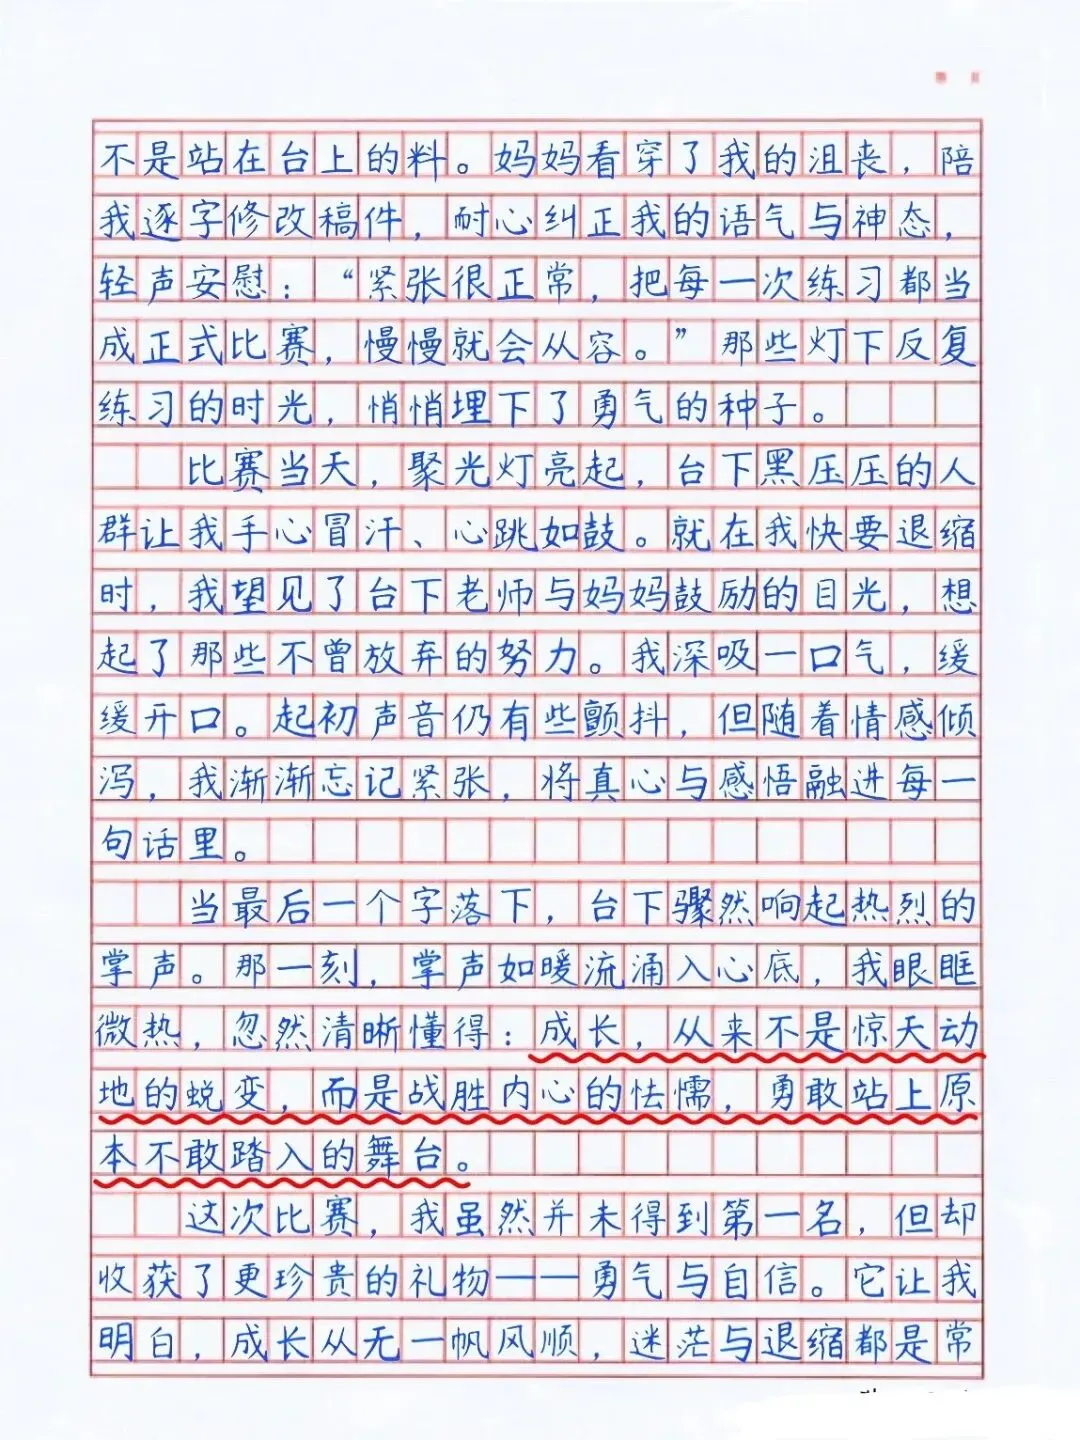 不是站在台上的料。妈妈看穿了我的沮丧，陪
我逐字修改稿件，耐心纠正我的语气与神态，
轻声安慰：“紧张很正常，把每一次练习都当
成正式比赛，慢慢就会从容。”那些灯下反复
练习的时光，悄悄埋下了勇气的种子。
比赛当天，聚光灯亮起，台下黑压压的人
群让我手心冒汗、心跳如鼓。就在我快要退缩
时，我望见了台下老师与妈妈鼓励的目光，想
起了那些不曾放弃的努力。我深吸一口气，缓
缓开口。起初声音仍有些颤抖，但随着情感倾
泻，我渐渐忘记紧张，将真心与感悟融进每一
句话里。
当最后一个字落下，台下骤然响起热烈的
掌声。那一刻，掌声如暖流涌入心底，我眼眶
微热，忽然清晰懂得：成长，从来不是惊天动
地的蜕变，而是战胜内心的怯懦，勇敢站上原
本不敢踏入的舞台。
这次比赛，我虽然并未得到第一名，但却
收获了更珍贵的礼物——勇气与自信。它让我
明白，成长从无一帆风顺，迷茫与退缩都是常